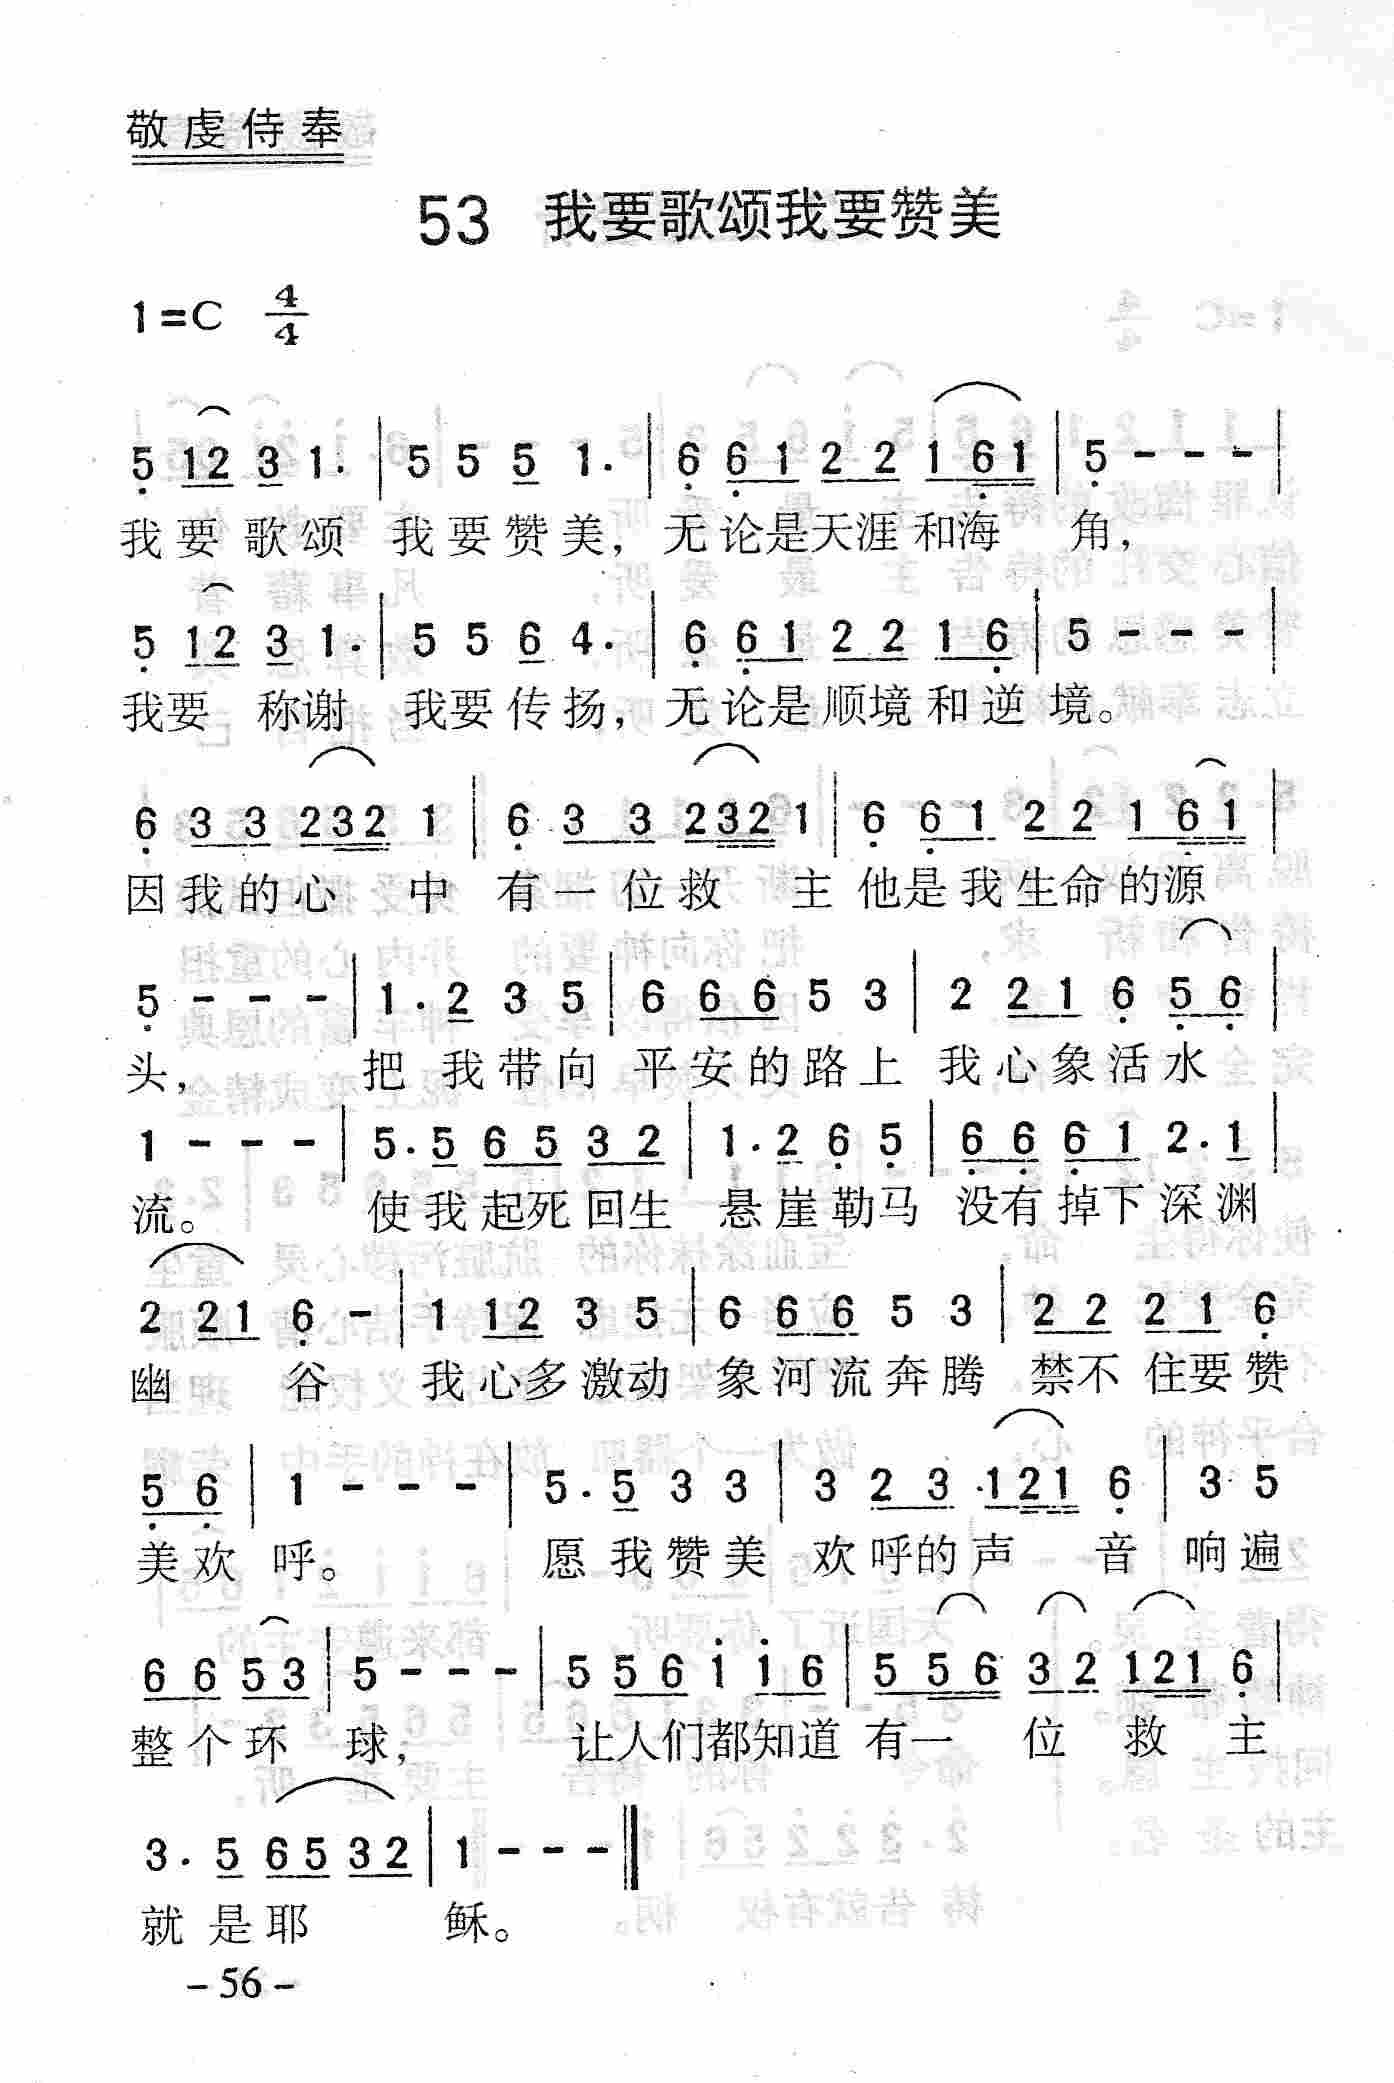 敬虔侍奉
53 我要歌颂我要赞美
1=C 4/4
5 12 3 1. | 5 5 5 1. | 6 61 22 161 | 5 - - - |
我要 歌颂 我要赞美, 无论是天涯和海 角,
5 12 3 1. | 5 5 6 4. | 6 61 22 16 | 5 - - - |
我要 称谢 我要传扬, 无论是顺境和逆境。
6 33 232 1 | 6 33 232 1 | 6 61 22 161 |
因我的心 中 有一位救 主他是我生命的源
5 - - - | 1. 2 3 5 | 6 66 5 3 | 2 21 6 56 |
头, 把 我带向 平安的路上 我心象活水
1 - - - | 5. 5 65 32 | 1. 2 6 5 | 66 61 2. 1 |
流。 使我起死回生 悬崖勒马 没有掉下深渊
2 21 6 - | 1 12 3 5 | 6 66 5 3 | 22 21 6
幽 谷 我心多激动 象河流奔腾 禁不住要赞
56 | 1 - - - | 5. 5 3 3 | 3 23 ·121 6 | 3 5
美欢 呼。 愿我赞美 欢呼的声 音 响遍
66 53 | 5 - - - | 5 56 i i6 | 556 32 121 6 |
整个环 球, 让人们都知道 有一 位 救 主
3. 5 65 32 | 1 - - - ‖
就是耶 稣。
- 56 -